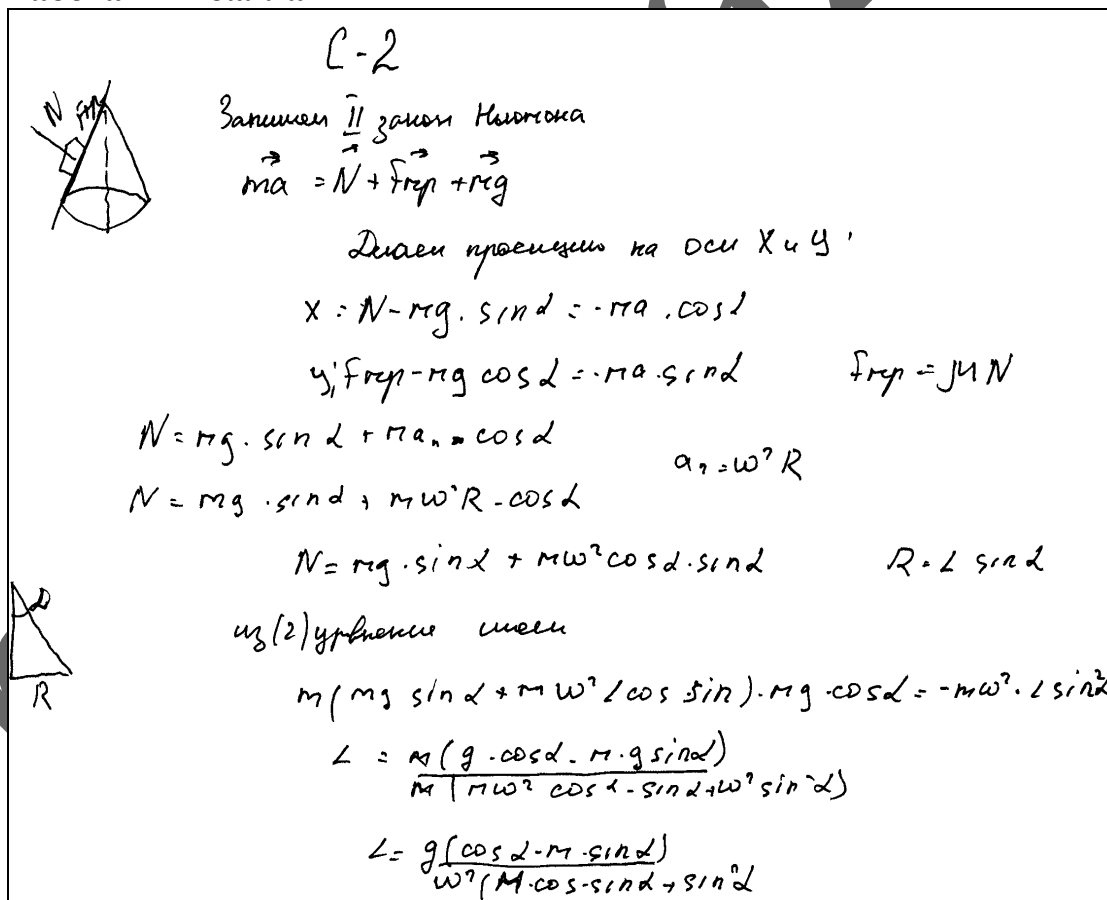 C-2
N Fтр
Запишем II закон Ньютона
ma = N + Fтр + mg
Делаем проекцию на оси X и У
X: N - mg · sin α = -ma · cos α
У: Fтр - mg cos α = -ma · sin α Fтр = μN
N = mg · sin α + maₙ · cos α
aₙ = ω² R
N = mg · sin α + mω²R · cos α
N = mg · sin α + mω² cos α · sin α R = L sin α
α
R
из (2) урвнение имеем
m(mg sin α + mω² L cos sin) · mg · cos α = -mω² · L sin² α
L = m(g · cos α - m · g sin α) / m(mω² cos α · sin α + ω² sin² α)
L = g(cos α - m · sin α) / ω²(M · cos · sin α + sin² α